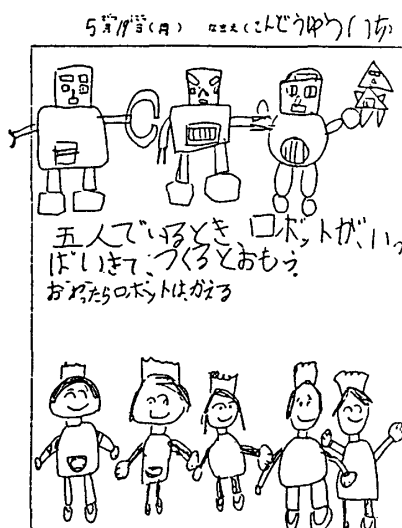 5月19日(月) なまえ(こんどうゆういち)
五人でいるとき、ロボットが、いっ
ぱいきて、つくるとおもう。
おわったらロボットは、かえる